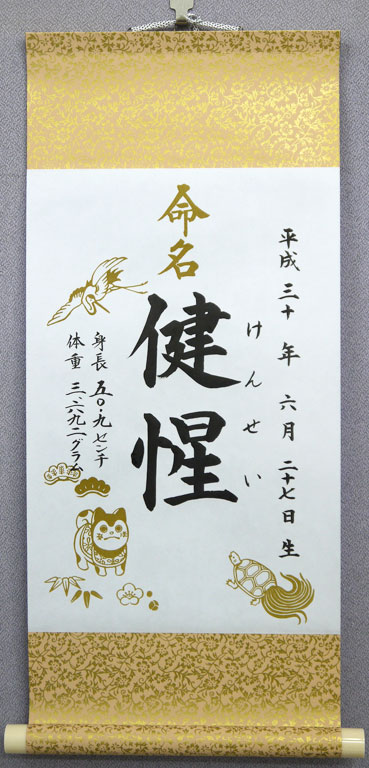 平成三十年六月二十七日生
命名
健惺
けんせい
身長 五〇.九センチ
体重 三、六九二グラム